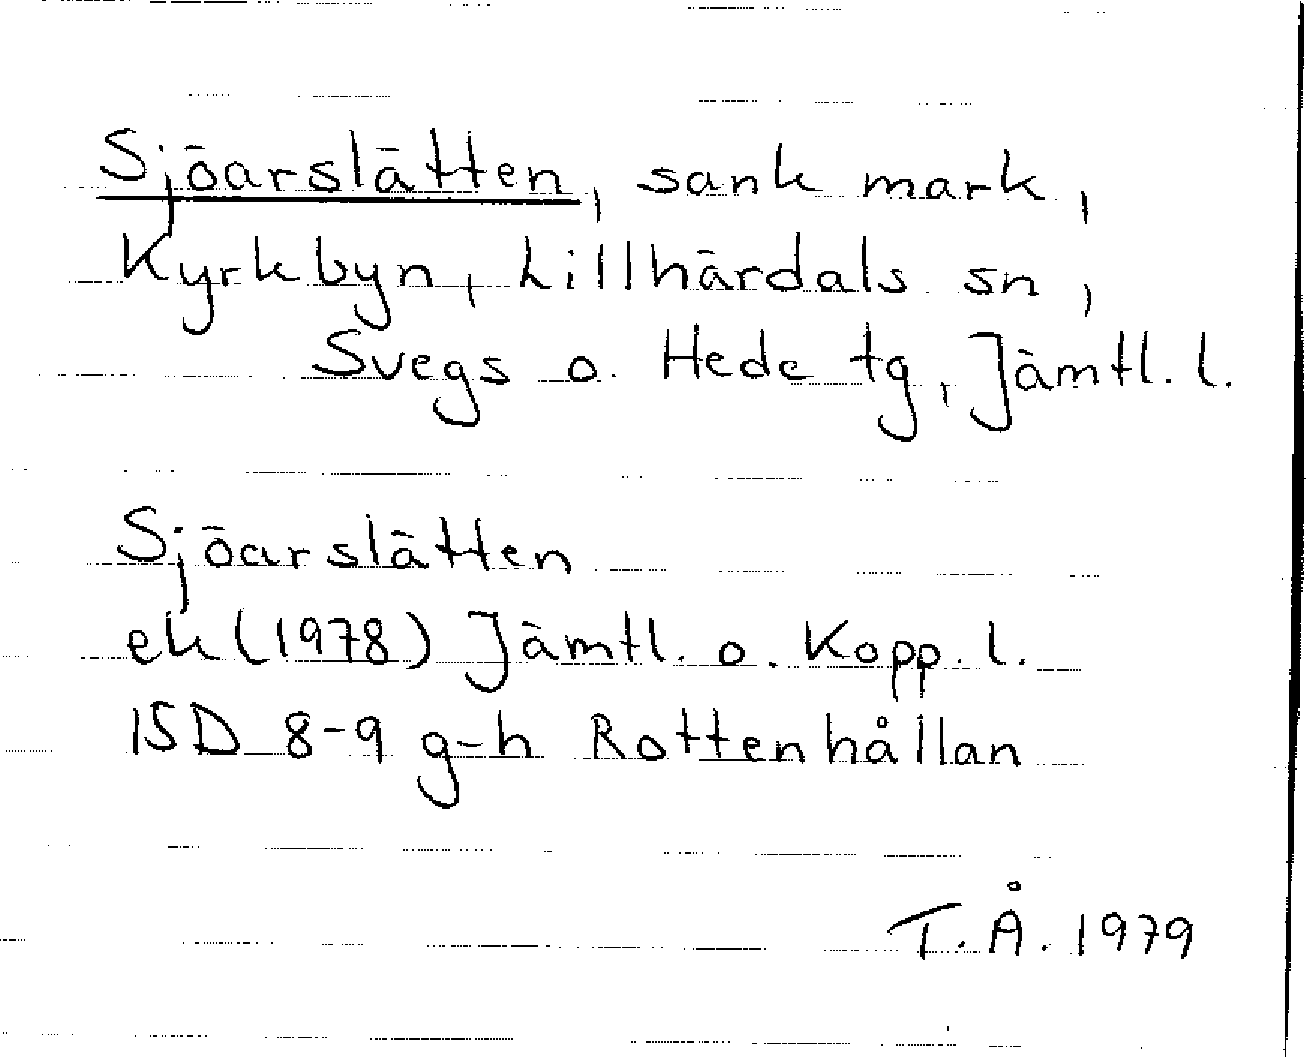 Sjöarslätten, sank mark,
Kyrkbyn, Lillhärdals sn,
Svegs o. Hede tg, Jämtl. l.
Sjöarslätten
ek (1978) Jämtl. o. Kopp. l.
15D 8-9 g-h Rottenhållan
T.Å. 1979